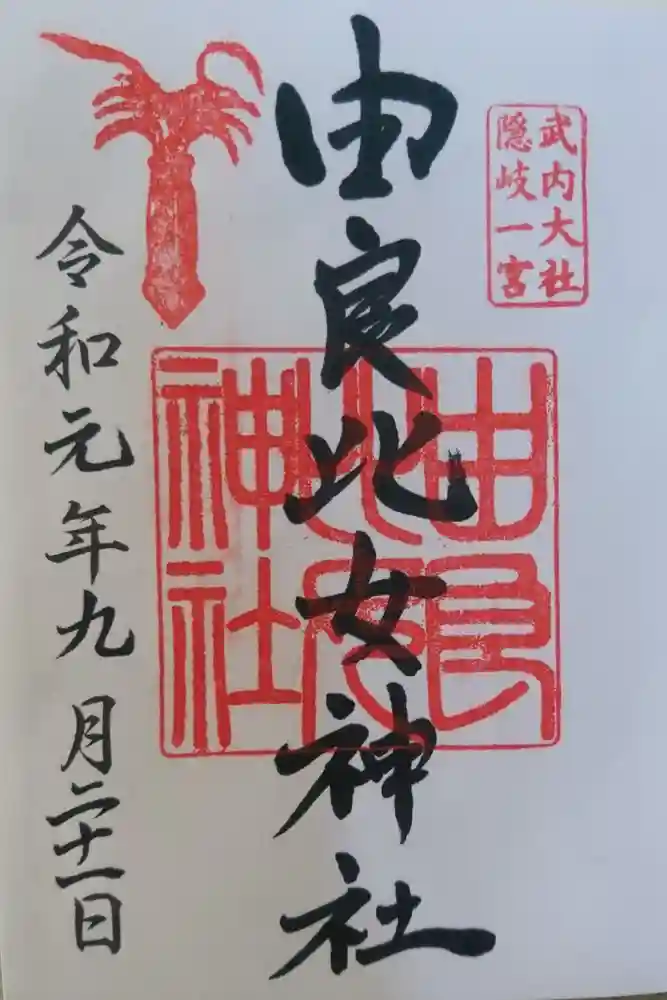 式内大社
隠岐一宮
由良比女神社
由良
比女
神社
令和元年九月二十一日